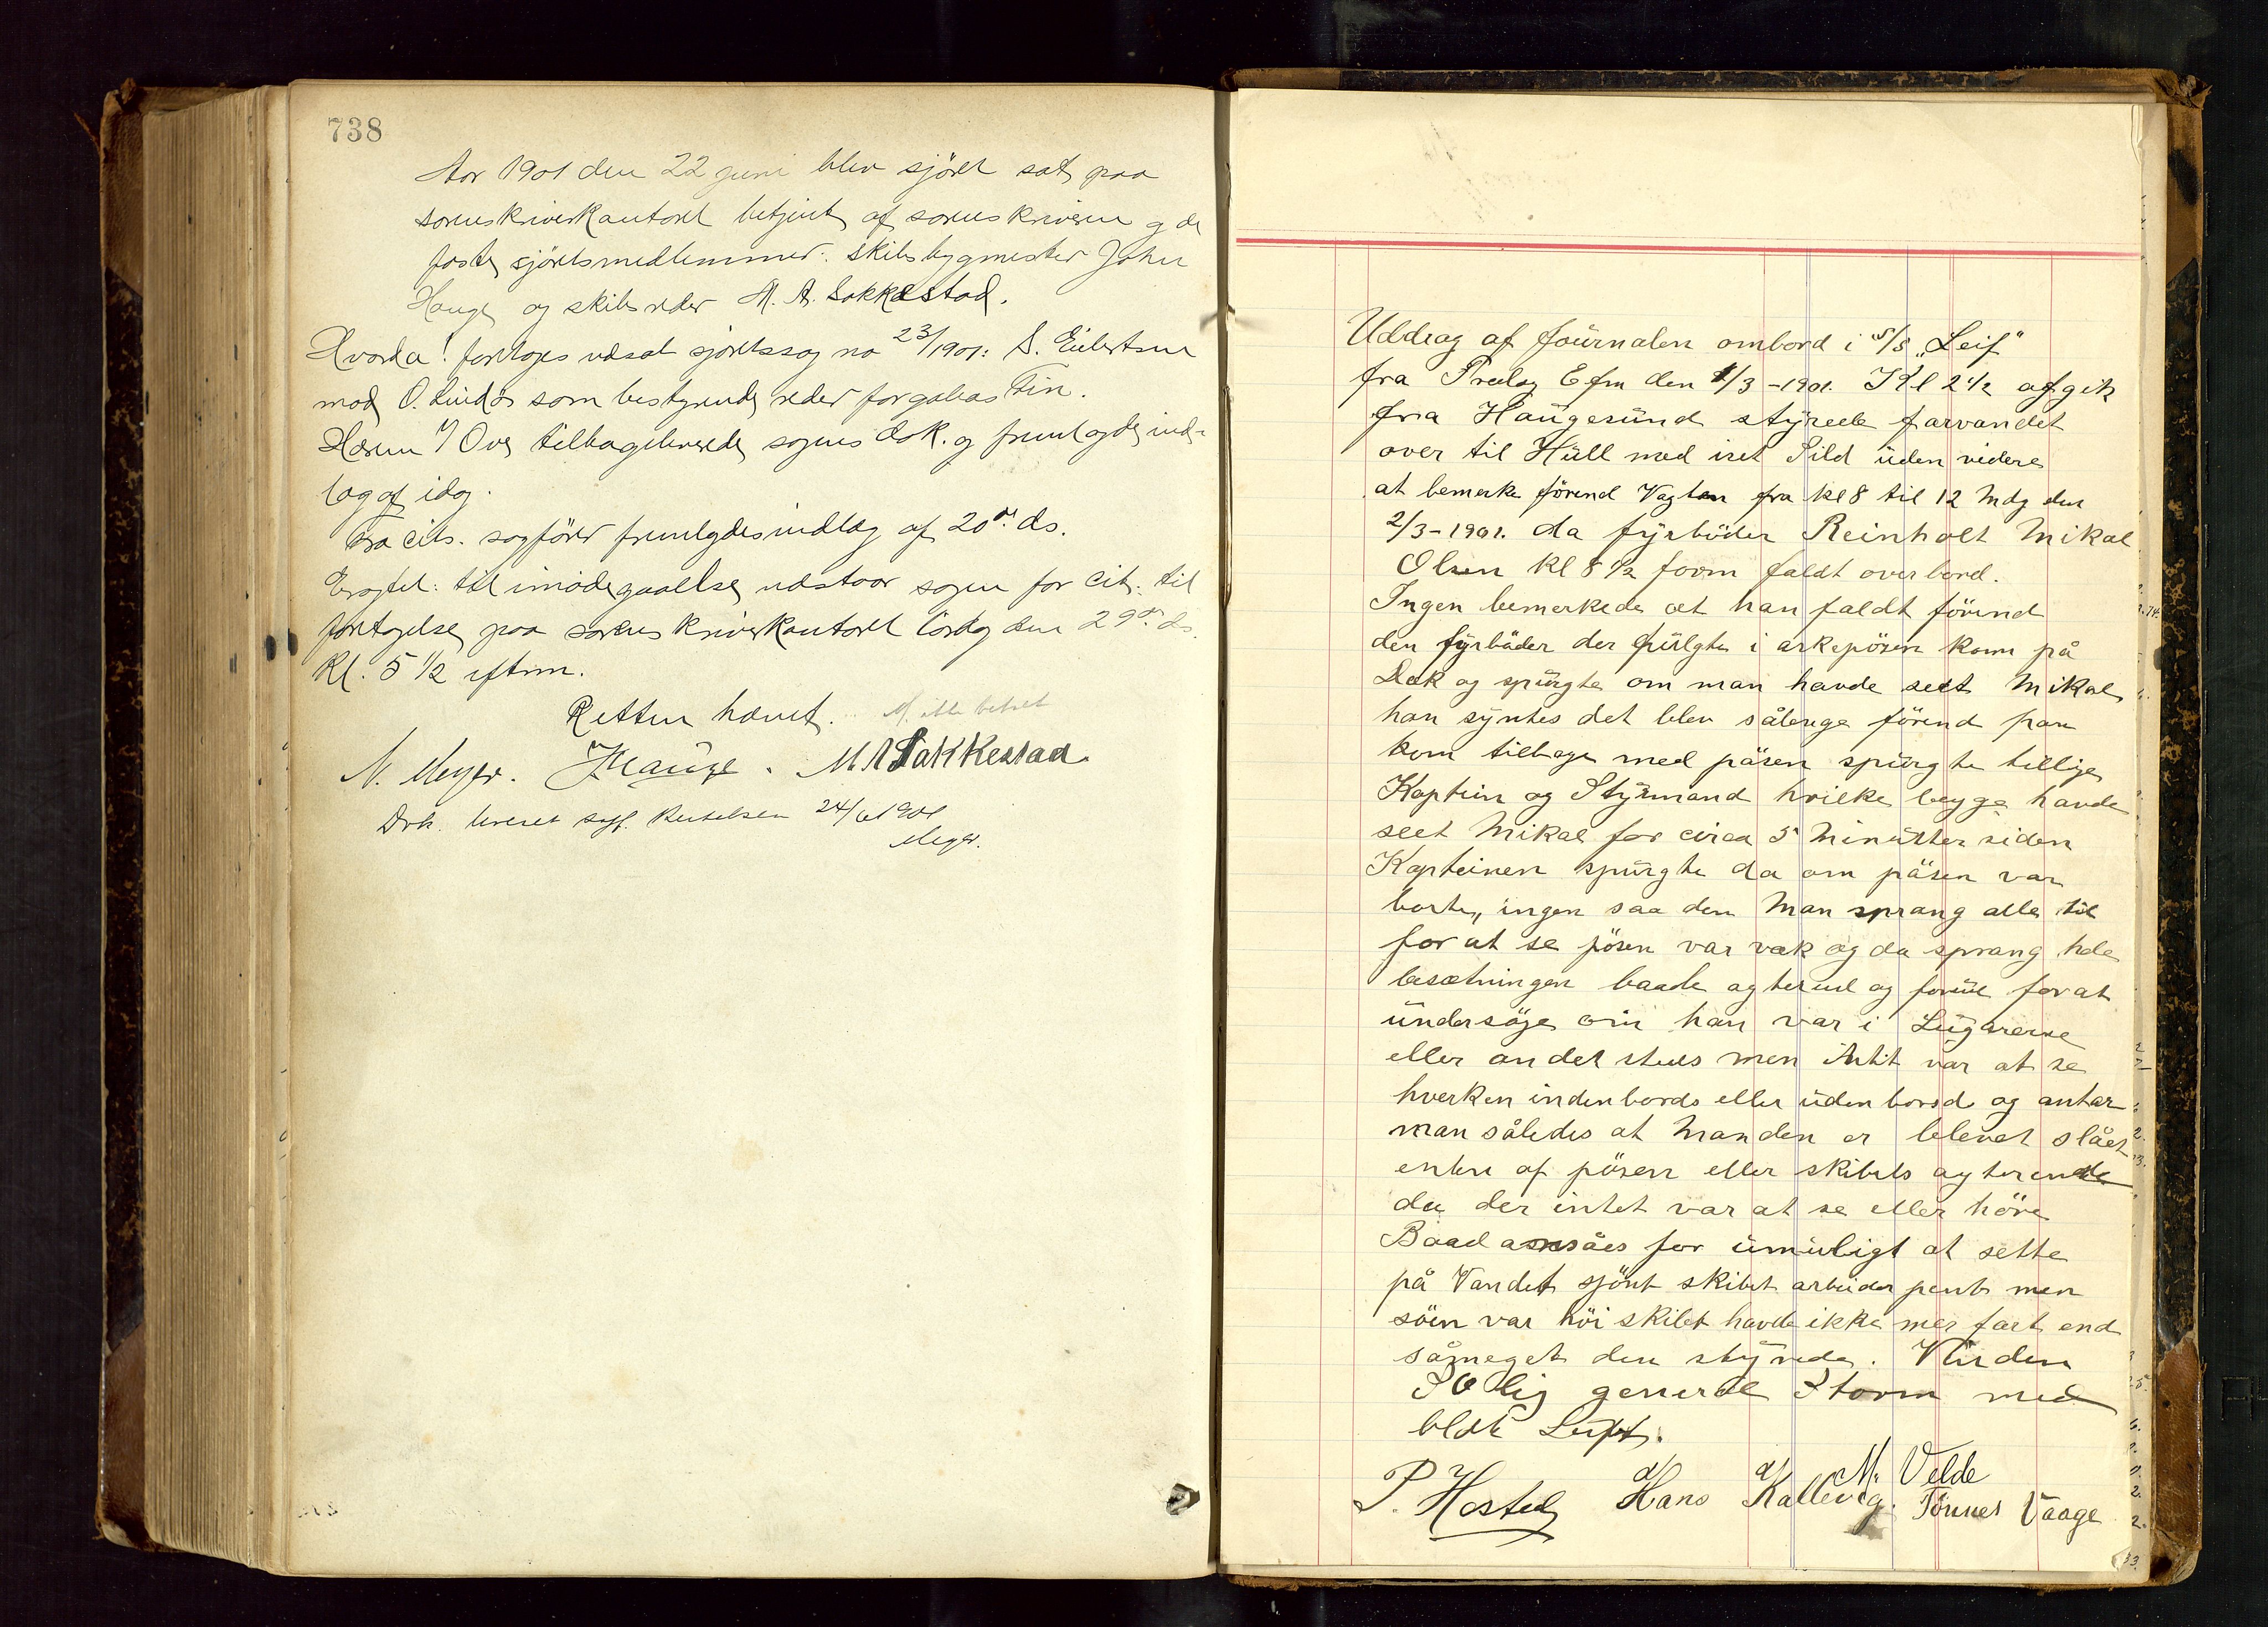 738
Aar 1901 den 22 juni blev sjöret sat paa
sorenskriverkontoret betjent af sorenskriveren g de
faste sjöretsmedlemmer: skibsbygmester John
Hauge og skibsreder M. A. Sakkestad.
Hvorda! foretoges udsat sjöretssag no 23/1901: S. Eilertsen
mod O. Lindøs som bestyrende reder for galeas Fin.
Hærm 1/ Ove tilbageleverede sagens dok. g fremlagde ind-
lag af idag.
Fra cits. sagförer fremlagdes indlæg af 20de ds.
Eragtet: til imödegaaelse udstaar sagen for cit. til
foretagelse paa sorenskriverkontoret lördag den 29de ds.
Kl. 5 1/2 eftm.
Retten hævet.
N. Meyer. J Hauge. M A Sakkestad.
Dok. leveret sagf. 24/6 1901
Meyer.
Uddrag af Journalen ombord i S/S „Leif“
fra Fredag Efm den 1/3-1901. Kl 2 1/2 afgik
fra Haugesund styrede farvandet
over til Hull med iset Sild uden videre
at bemerke förend Vagten fra kl 8 til 12 Mdg den
2/3-1901. da fyrböder Reinholt Mikal
Olsen kl 8 1/2 form faldt overbord.
Ingen bemerkede at han faldt förend
den fyrböder der fulgte i askepösen kom på
Dek og spurgte om man havde seet Mikal
han syntes det blev sålenge förend han
kom tilbage med pösen spurgte tillige
Kaptein og Styrmand hvilke begge havde
seet Mikal for circa 5 Minutter siden
Kapteinen spurgte da om pösen var
borte, ingen saa den Man sprang alle til
for at se pösen var vek og da sprang hele
besætningen baade agterud og forud for at
undersöge om han var i Lugarerne
eller andet steds men intit var at se
hverken indenbords eller udenbords og antar
man således at Manden er blevet slået
enten af pösen eller skibets agterende
da der intet var at se eller höre
Baad ansåes for umuligt at sette
på Vandet sjönt skibet arbeider pent men
söen var höi skibet havde ikke mer fart end
såmeget den styrede. Vinden
SOlig general Storm med
blok Luft.
P. Hostel Hans Kallevig. M. Velde
Tönnes Vaage